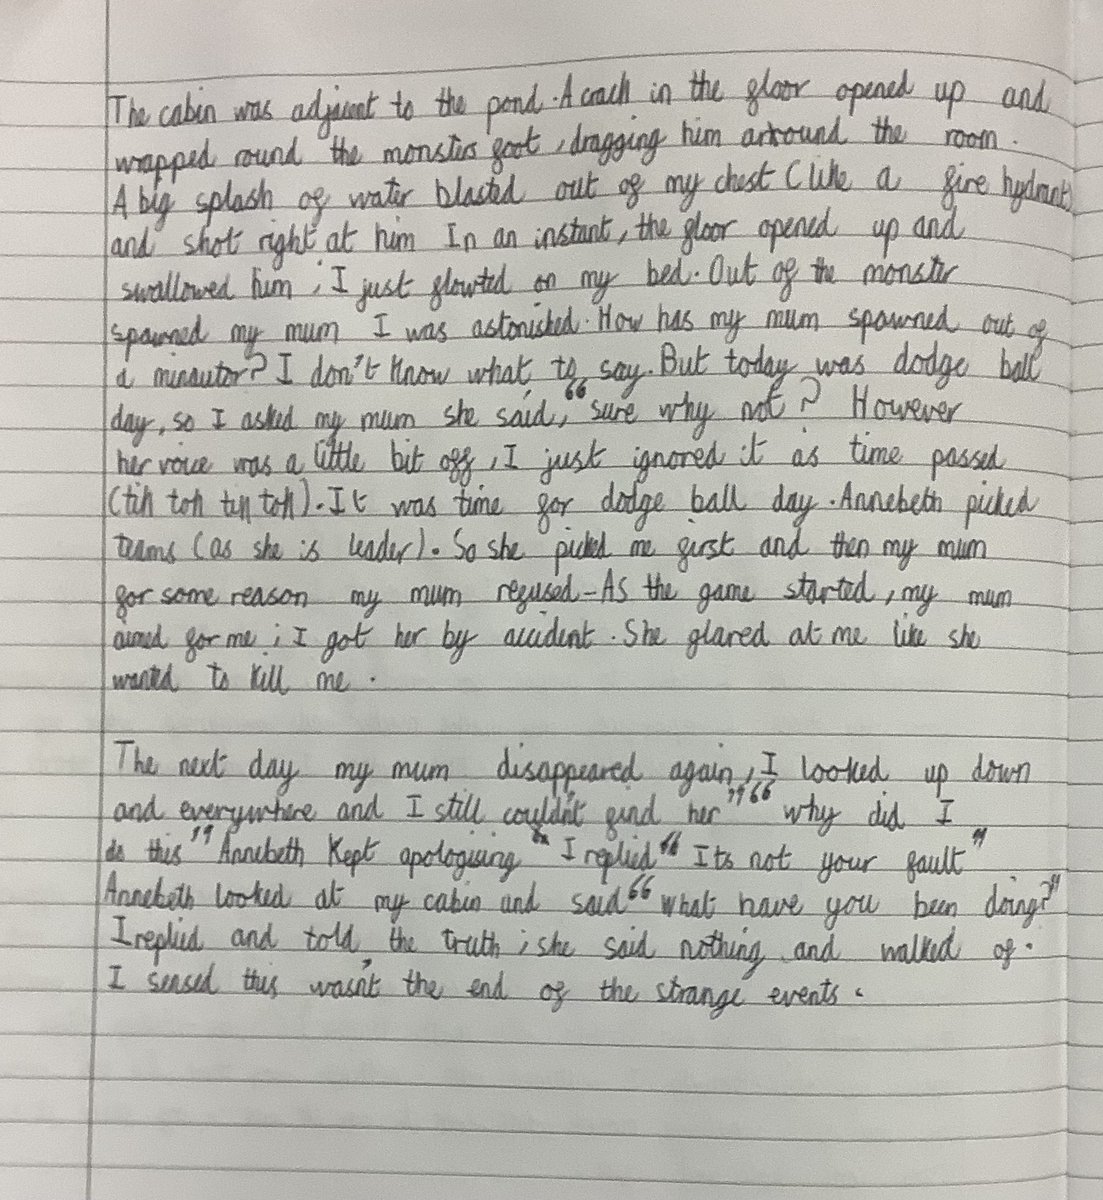 The cabin was adjacent to the pond. A crack in the floor opened up and
wrapped round the monsters foot, dragging him around the room.
A big splash of water blasted out of my chest (like a fire hydrant)
and shot right at him In an instant, the floor opened up and
swallowed him ; I just flowted on my bed. Out of the monster
spawned my mum I was astonished. How has my mum spawned out of
a minautor? I don't know what to say. But today was dodge ball
day, so I asked my mum she said, “sure why not? However
her voice was a little bit off, I just ignored it as time passed
(tik tok tik tok). It was time for dodge ball day. Annebeth picked
teams (as she is leader). So she picked me first and then my mum
for some reason my mum refused - As the game started, my mum
aimed for me ; I got her by accident. She glared at me like she
wanted to kill me.
The next day my mum disappeared again, I looked up down
and everywhere and I still couldn't find her” “why did I
do this” Annebeth kept apologising “ I replied “ Its not your fault”
Annebeth looked at my cabin and said “what have you been doing?”
I replied and told the truth ; she said nothing and walked of.
I sensed this wasn't the end of the strange events.